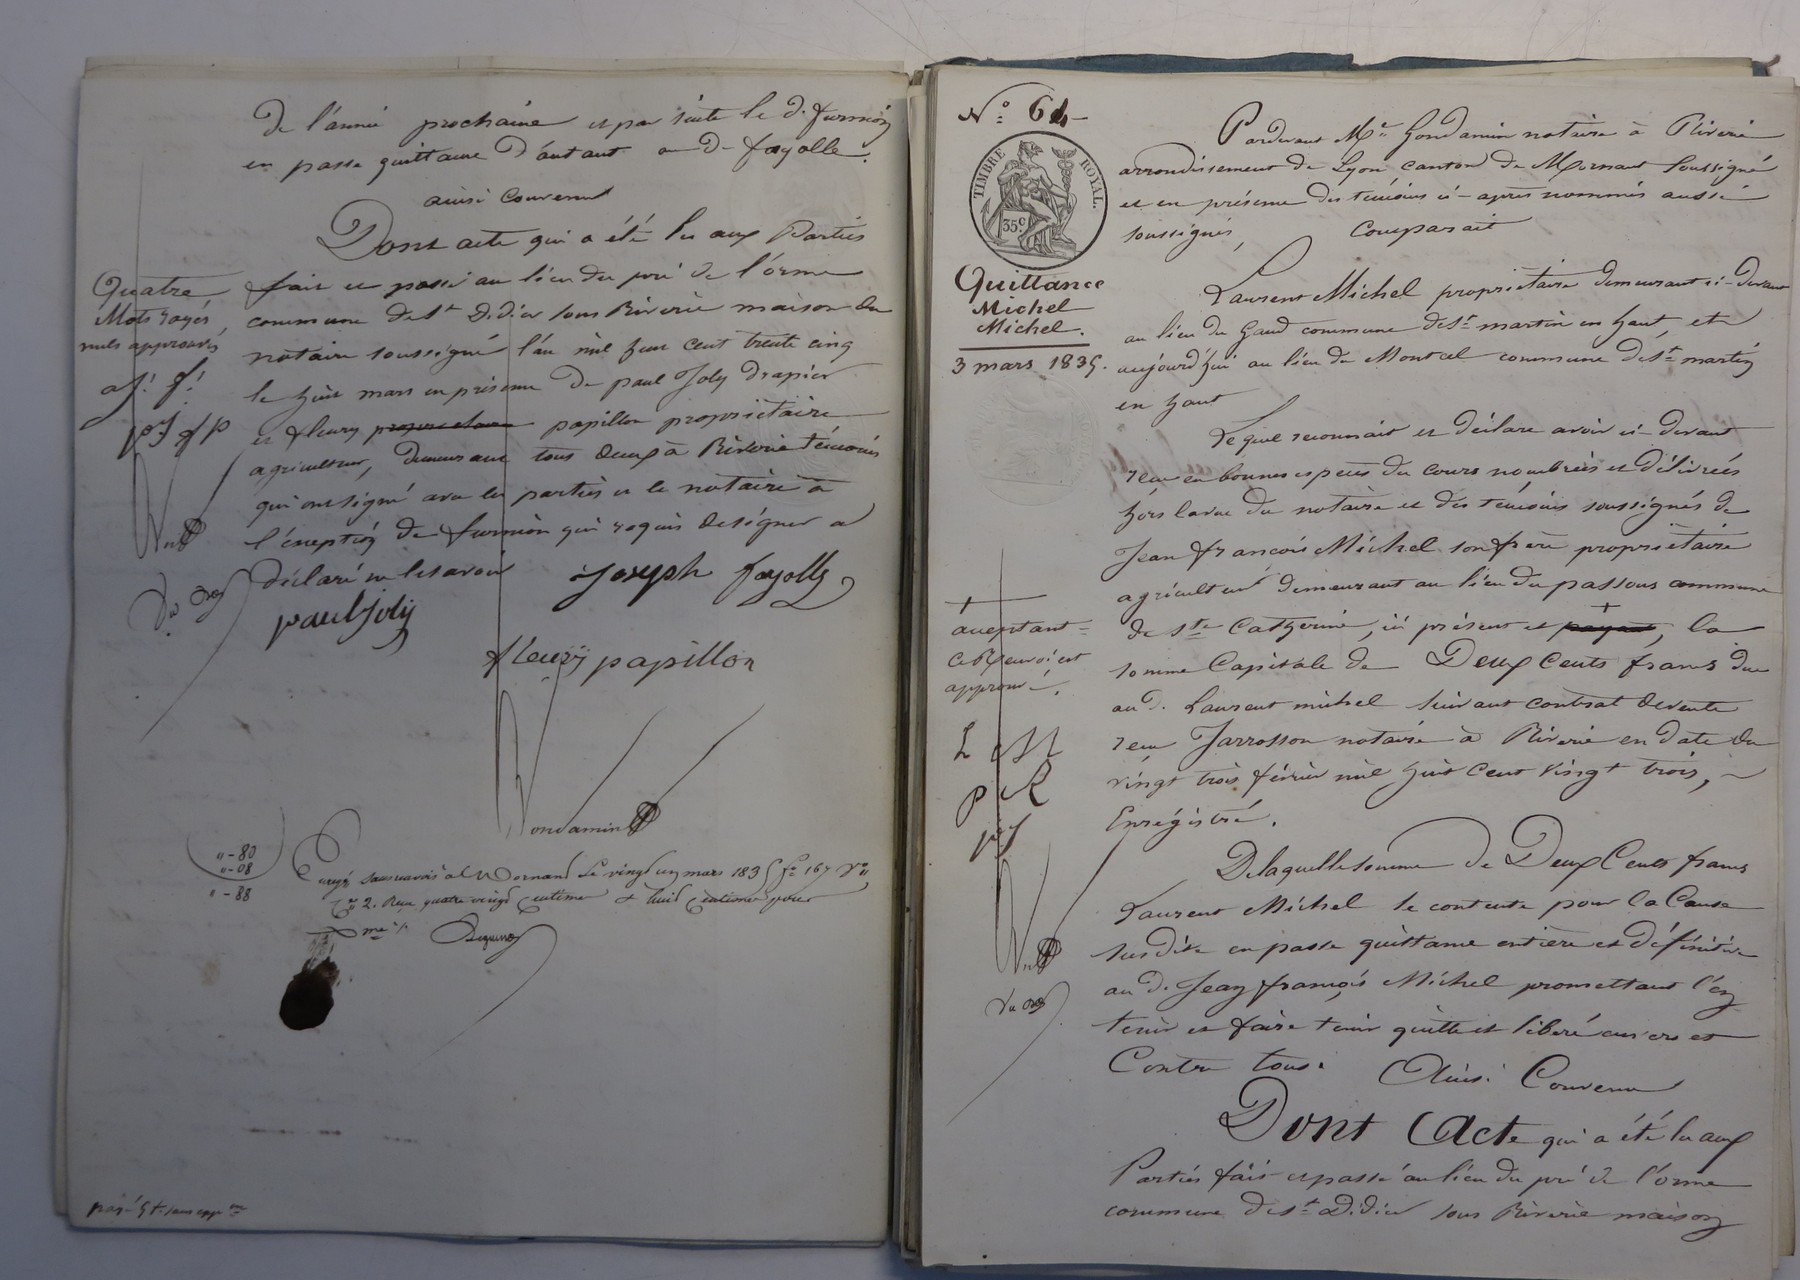 de l'année prochaine et par suite le d. furnion
en passe quittance d'autant au d. fayolle.
ainsi convenu
Dont acte qui a été lu aux Parties
fait et passé au lieu du pré de l'orme
commune de St Didier sous Riverie maison du
notaire soussigné l'an mil huit cent trente cinq
le huit mars en présence de paul Joly drapier
et fleury proprietaire papillon propriétaire
agriculteur, demeurant tous deux à Riverie témoins
qui ont signé avec les parties et le notaire à
l'exeption de furnion qui requis de signer a
déclaré ne le savoir
Joseph fayolle
paul joly
fleury papillon
Gondamin
Quatre
Mots rayés
nuls approuvés
pJ fp
" - 80
" - 08
" - 88
sous renvoi à Mornand Le vingt un mars 1835 fo 167 Vo
Ce 2. Reçu quatre vingt centimes et huit centimes pour
Dme
payé 5 f
No 64
TIMBRE ROYAL.
35c
Quittance
Michel
Michel.
3 mars 1835.
Pardevant Me Gondamin notaire à Riverie
arrondissement de Lyon canton de Mornant soussigné
et en présence des témoins ci-après nommés aussi
soussignés, Comparait
Laurent Michel propriétaire demeurant ci-devant
au lieu du Gaud commune de St martin en haut, et
aujourd'hui au lieu de Montcel commune de St martin
en haut
Lequel reconnait et déclare avoir ci-devant
reçu en bonnes espèces du cours nombrées et délivrées
hors la vue du notaire et des témoins soussignés de
Jean françois Michel son frère propriétaire
agriculteur demeurant au lieu du passous commune
de Ste Catherine, ici présent et payant, la
somme Capitale de Deux Cents francs due
au d. Laurent michel suivant contrat de vente
reçu Jarrosson notaire à Riverie en date du
vingt trois février mil huit cent vingt trois,
Enrégistré.
De laquelle somme de Deux Cents francs
Laurent Michel se contente pour la Cause
susdite en passe quittance entière et définitive
au d. Jean françois Michel promettant l'en
tenir et faire tenir quitte et libéré envers et
Contre tous. Ainsi Convenu
Dont Acte qui a été lu aux
Parties fait et passé au lieu du pré de l'orme
commune de St Didier sous Riverie maison
+
acceptant
Ce Renvoi est
approuvé.
L M
P R
pJ